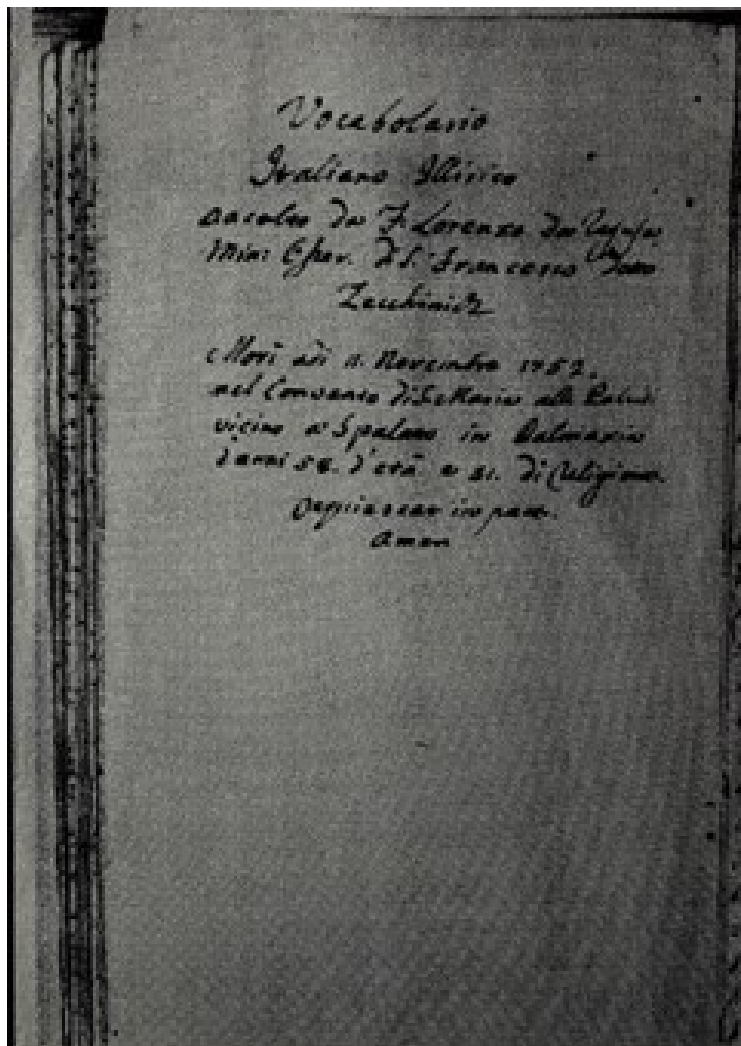 Vocabolario
Italiano Illirico
da F. Lorenzo da
Min: Osser. di S. Francesco
Zecchinich
Morì adi 11. Novembre
nel Convento di alle Paludi
vicino a Spalato in Dalmazia
d'anni 58. d'età e 41. di Religione.
in pace.
Amen